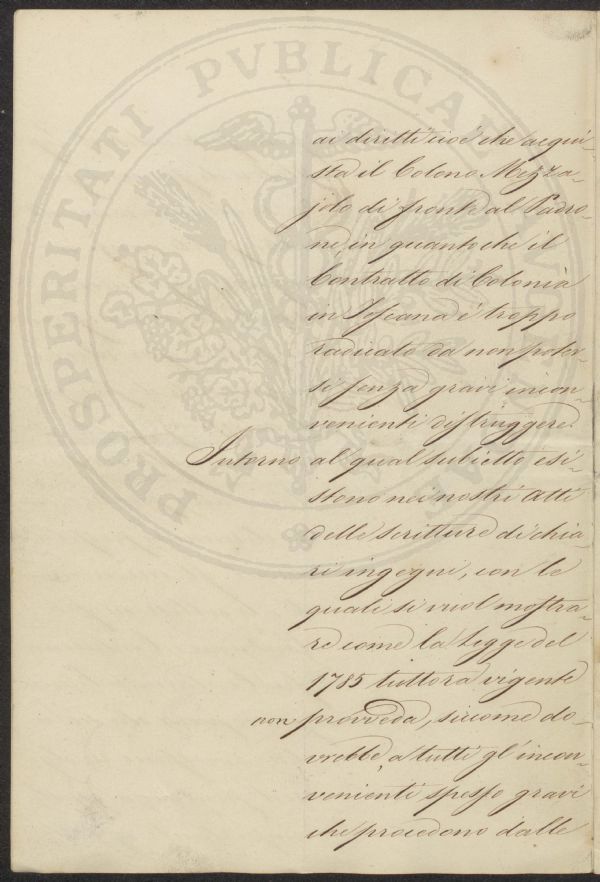 PROSPERITATI PVBLICAE
ai diritti cioè che acqui-
sta il Colono Mezza-
jolo di fronte al Padro-
ne, in quanto che il
Contratto di Colonìa
in Toscana è troppo
radicato da non poter-
si senza gravi incon-
venienti distruggere.
Intorno al qual subietto esi-
stono nei nostri Atti
delle scritture di chia-
ri ingegni, con le
quali si vuol mostra-
re come la Legge del
1785 tuttora vigente
non provveda, siccome do-
vrebbe, a tutti gl'incon-
venienti spesso gravi
che procedono dalle